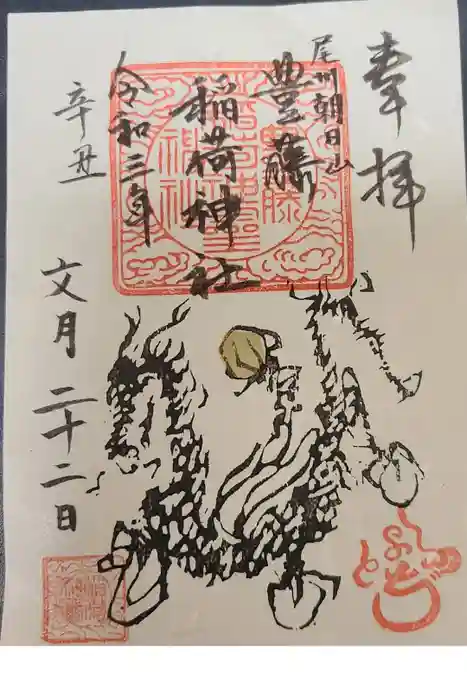 奉拝
尾州朝日山
豊藤
稲荷神社
令和三年
辛丑
文月二十二日